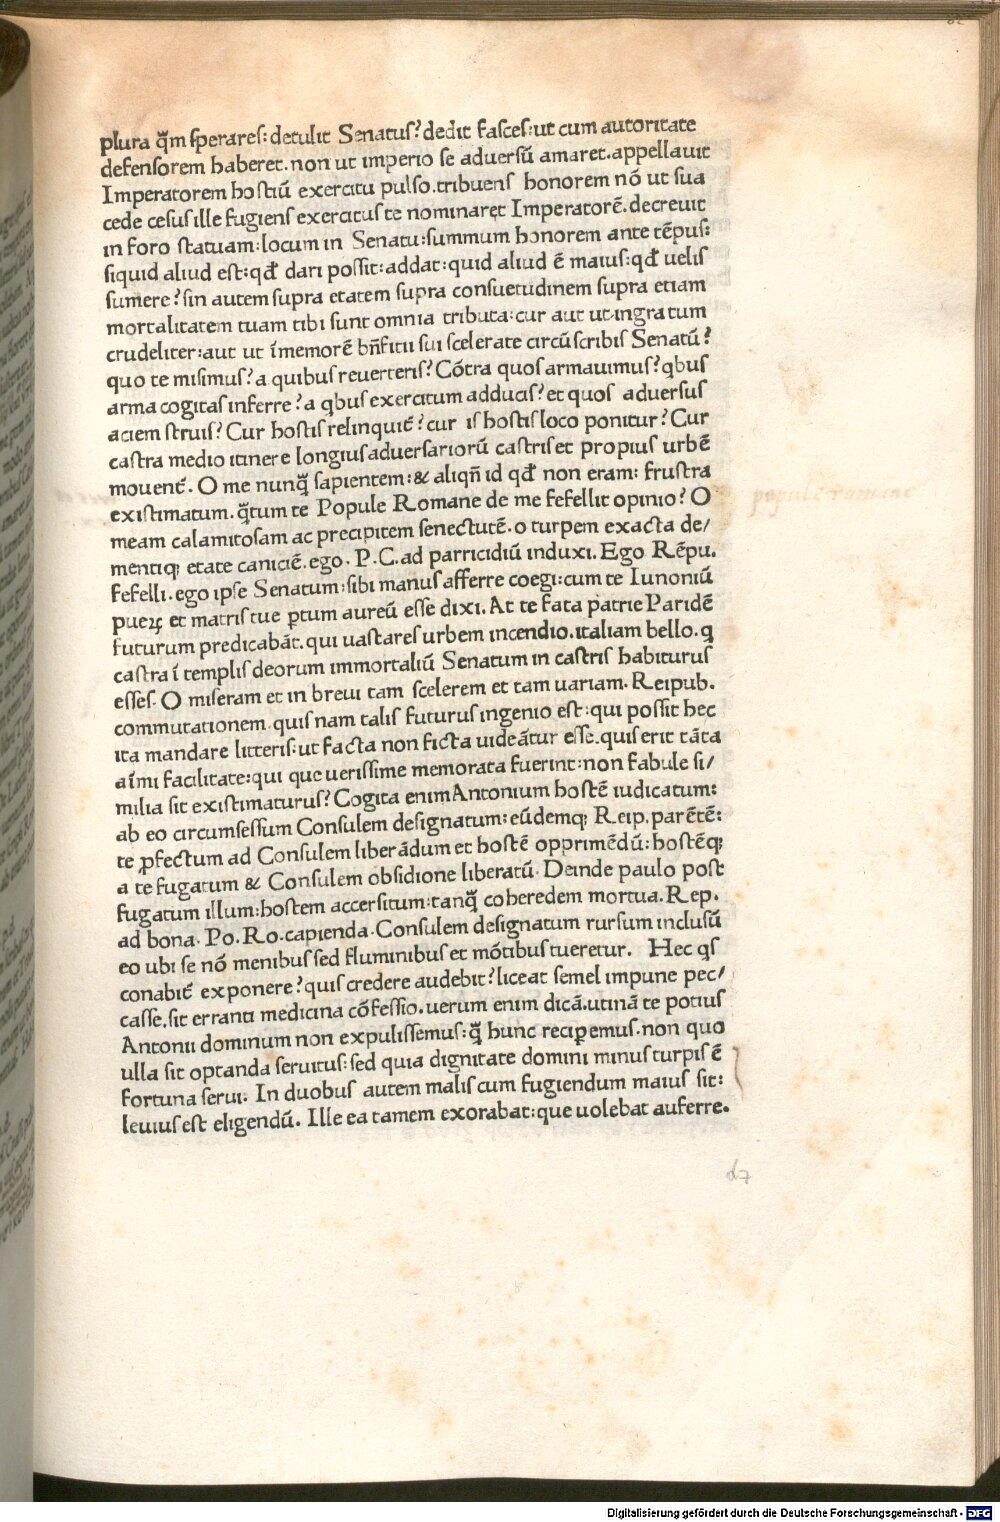 plura q̃m sperares: detulit Senatus? dedit fasces: ut cum autoritate
defensorem haberet. non ut imperio se aduersũ amaret. appellauit
Imperatorem hostiũ exercitu pulso. tribuens honorem nõ ut sua
cede cesus ille fugiens exercitus te nominaret Imperatorẽ. decreuit
in foro statuam: locum in Senatu: summum honorem ante tẽpus:
siquid aliud est: qđ dari possit: addat: quid aliud ẽ maius: qđ uelis
sumere? sin autem supra etatem supra consuetudinem supra etiam
mortalitatem tuam tibi sunt omnia tributa: cur aut ut ingratum
crudeliter: aut ut ĩmemorẽ bñfitii sui scelerate circũscribis Senatũ?
quo te misimus? a quibus reuerteris? Cõtra quos armauimus? qbus
arma cogitas inferre? a qbus exercitum adducis? et quos aduersus
aciem struis? Cur hostis relinquit̃? cur is hostis loco ponitur? Cur
castra medio itinere longius aduersariorũ castris et propius urbẽ
mouent̃. O me nunq̃ sapientem: & aliqñ id qđ non eram: frustra
existimatum. q̃tum te Popule Romane de me fefellit opinio? O
meam calamitosam ac precipitem senectutẽ. o turpem exacta de/
mentiq; etate caniciẽ. ego. P. C. ad parricidiũ induxi. Ego Rẽpu.
fefelli. ego ipse Senatum: sibi manus afferre coegi: cum te Iunoniũ
pueꝝ et matris tue ꝑtum aureũ esse dixi. At te fata patrie Paridẽ
futurum predicabãt. qui uastares urbem incendio. italiam bello. q
castra ĩ templis deorum immortaliũ Senatum in castris habiturus
esses. O miseram et in breui tam scelerem et tam uariam. Reipub.
commutationem. quis nam talis futurus ingenio est: qui possit hec
ita mandare litteris: ut facta non ficta uideãtur esse. quis erit tãta
aĩmi facilitate: qui que uerissime memorata fuerint: non fabule si/
milia sit existimaturus? Cogita enim Antonium hostẽ iudicatum:
ab eo circumsessum Consulem designatum: eũdemq; Reip. parẽtẽ:
te ꝓfectum ad Consulem liberãdum et hostẽ opprimẽdũ: hostẽq;
a te fugatum & Consulem obsidione liberatũ. Deinde paulo post
fugatum illum: hostem accersitum: tanq̃ coheredem mortua. Rep.
ad bona. Po. Ro. capienda. Consulem designatum rursum inclusũ
eo ubi se nõ menibus sed fluminibus et mõtibus tueretur. Hec qs
conabit̃ exponere? quis credere audebit? liceat semel impune pec/
casse. sit erranti medicina cõfessio. uerum enim dicã. utinã te potius
Antonii dominum non expulissemus: q̃ hunc reciꝑemus. non quo
ulla sit optanda seruitus: sed quia dignitate domini minus turpis ẽ
fortuna serui. In duobus autem malis cum fugiendum maius sit:
leuius est eligendũ. Ille ea tamem exorabat: que uolebat auferre.
popule romane
d7
Digitalisierung gefördert durch die Deutsche Forschungsgemeinschaft - DFG